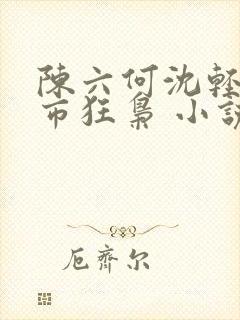 陳六何沈輕
市狂梟 小說
厄齊尔